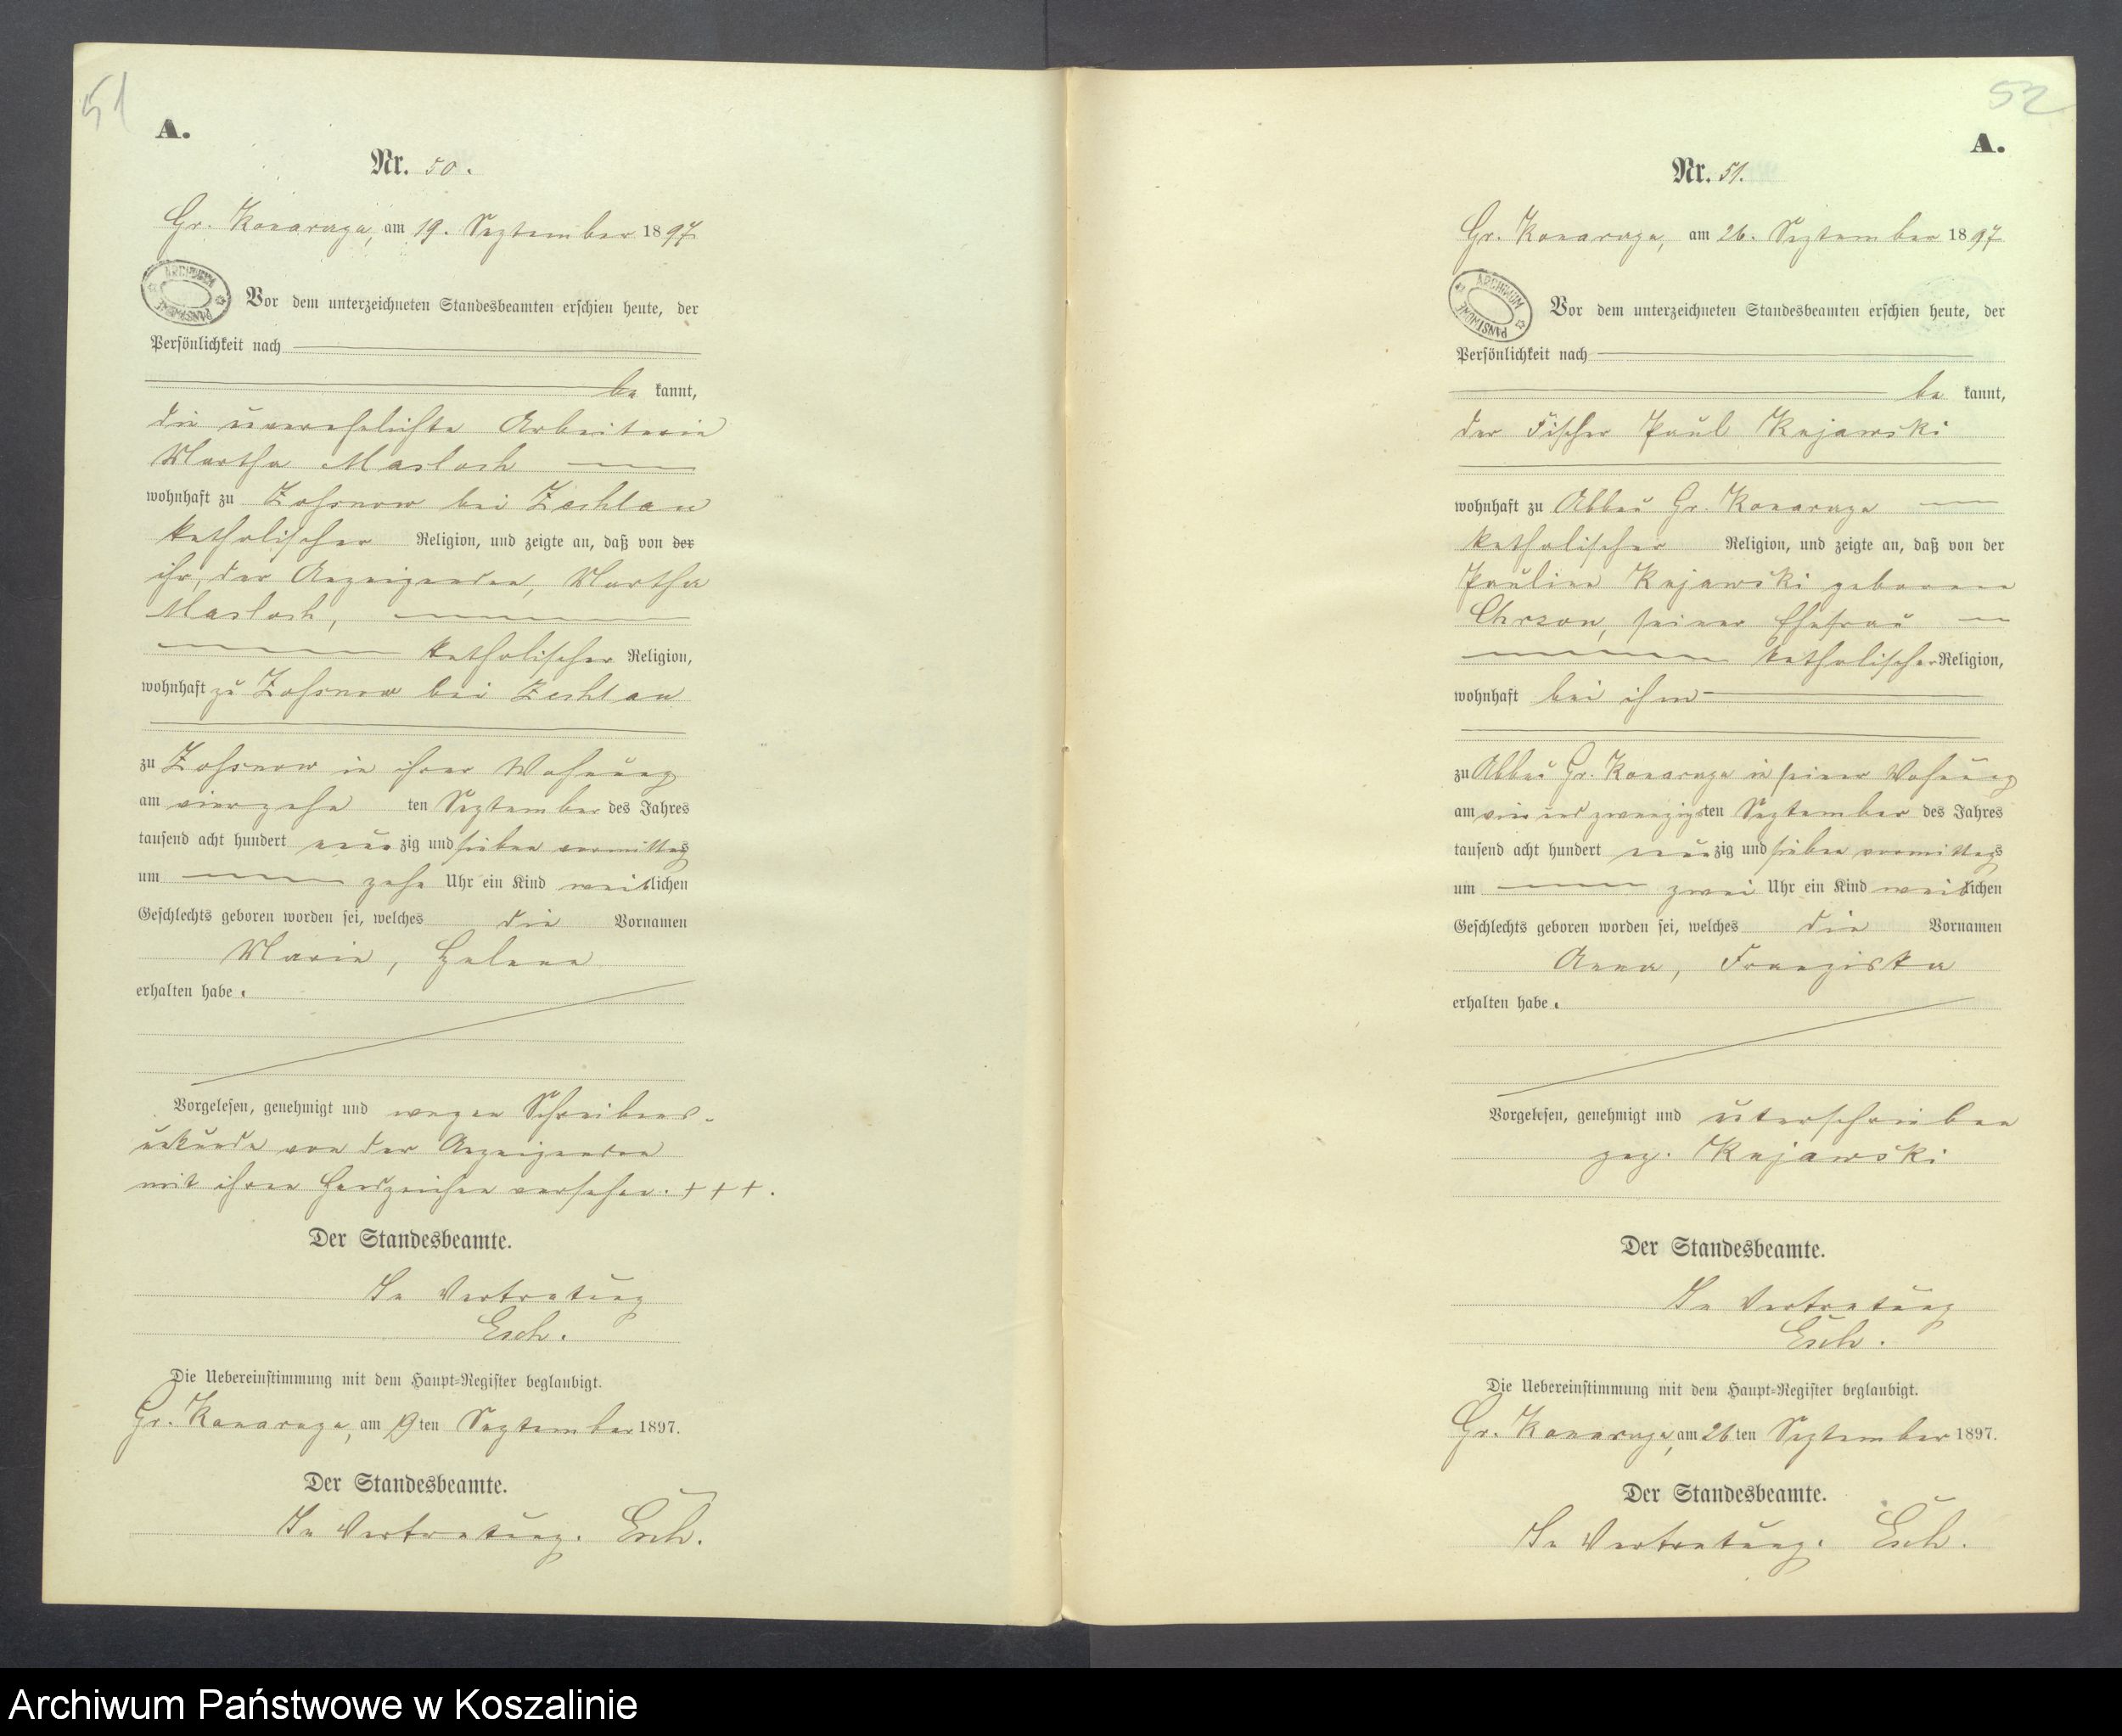 51
A.
Nr. 50.
Gr. Konarzyn, am 19. September 1897
ARCHIWUM PAŃSTWOWE
Vor dem unterzeichneten Standesbeamten erschien heute, der
Persönlichkeit nach
be kannt,
die unverehelichte Arbeiterin
Martha Masloch
wohnhaft zu Zofsnow bei Zechlau
katholischer Religion, und zeigte an, daß von der
ihr, der Anzeigenden, Martha
Masloch,
katholischer Religion,
wohnhaft zu Zofsnow bei Zechlau
zu Zofsnow in ihrer Wohnung
am vierzehn ten September des Jahres
tausend acht hundert neunzig und sieben vormittags
um zehn Uhr ein Kind weiblichen
Geschlechts geboren worden sei, welches die Vornamen
Maria, Helena
erhalten habe.
Vorgelesen, genehmigt und wegen Schreibens-
unkunde von der Anzeigenden
mit ihren Handzeichen versehen. +++.
Der Standesbeamte.
In Vertretung
Esch.
Die Uebereinstimmung mit dem Haupt-Register beglaubigt.
Gr. Konarzyn, am 19ten September 1897.
Der Standesbeamte.
In Vertretung. Esch.
52
A.
Nr. 51.
Gr. Konarzyn, am 26. September 1897
ARCHIWUM PAŃSTWOWE
Vor dem unterzeichneten Standesbeamten erschien heute, der
Persönlichkeit nach
be kannt,
der Fischer Paul Kujawski
wohnhaft zu Abbau Gr. Konarzyn
katholischer Religion, und zeigte an, daß von der
Pauline Kujawski geborene
Chrzon, seiner Ehefrau
katholischer Religion,
wohnhaft bei ihm
zu Abbau Gr. Konarzyn in seiner Wohnung
am vier und zwanzigsten September des Jahres
tausend acht hundert neunzig und sieben vormittags
um zwei Uhr ein Kind weiblichen
Geschlechts geboren worden sei, welches die Vornamen
Anna, Franziska
erhalten habe.
Vorgelesen, genehmigt und unterschrieben
gez. Kujawski
Der Standesbeamte.
In Vertretung
Esch.
Die Uebereinstimmung mit dem Haupt-Register beglaubigt.
Gr. Konarzyn, am 26ten September 1897.
Der Standesbeamte.
In Vertretung. Esch.
Archiwum Państwowe w Koszalinie